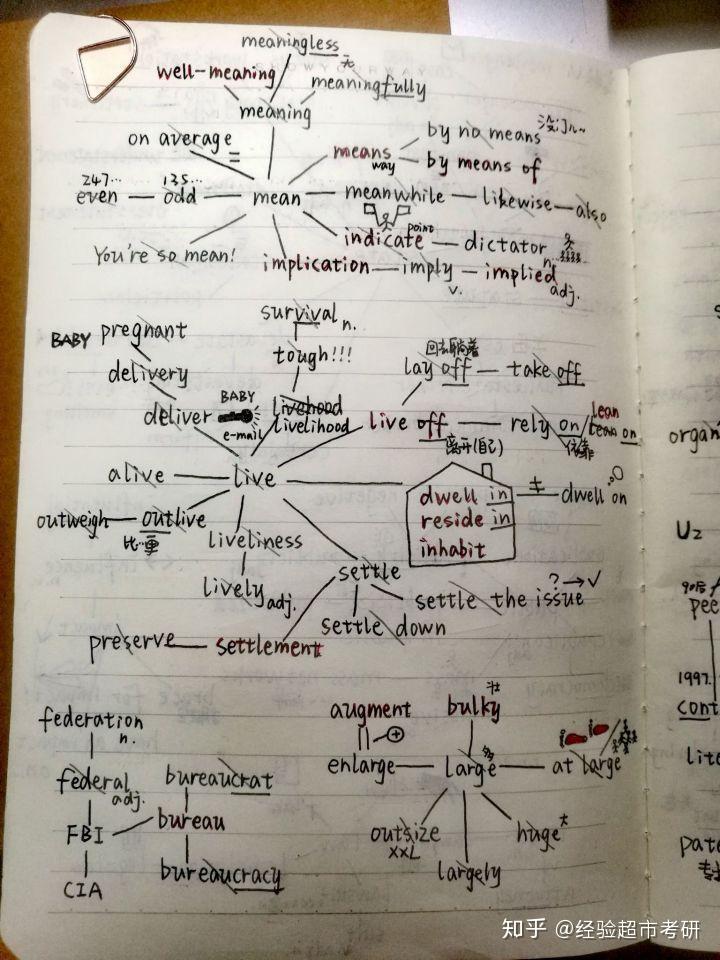 meaningless
well-meaning
meaningfully
meaning
on average
=
means
way
by no means
没门儿~
by means of
247... 135...
even odd mean meanwhile likewise also
You're so mean!
indicate point dictator
n.
implication imply implied
v. adj.
survival n.
BABY pregnant
tough!!!
delivery
回去躺着
lay off take off
deliver
BABY
e-mail
livehood
livelihood
live off rely on / lean on
离开(自己)
依靠
alive live
dwell in
reside in
inhabit
dwell on
outweigh outlive
比…更
liveliness
lively adj.
settle
settle the issue
? → ✓
settle down
preserve settlement
federation
n.
augment
bulky
enlarge large at large
federal
adj.
bureaucrat
FBI bureau
outsize
XXL
huge
largely
CIA
bureaucracy
organ
U2
90后
pee
1997.
cont
lite
pate
知乎 @经验超市考研